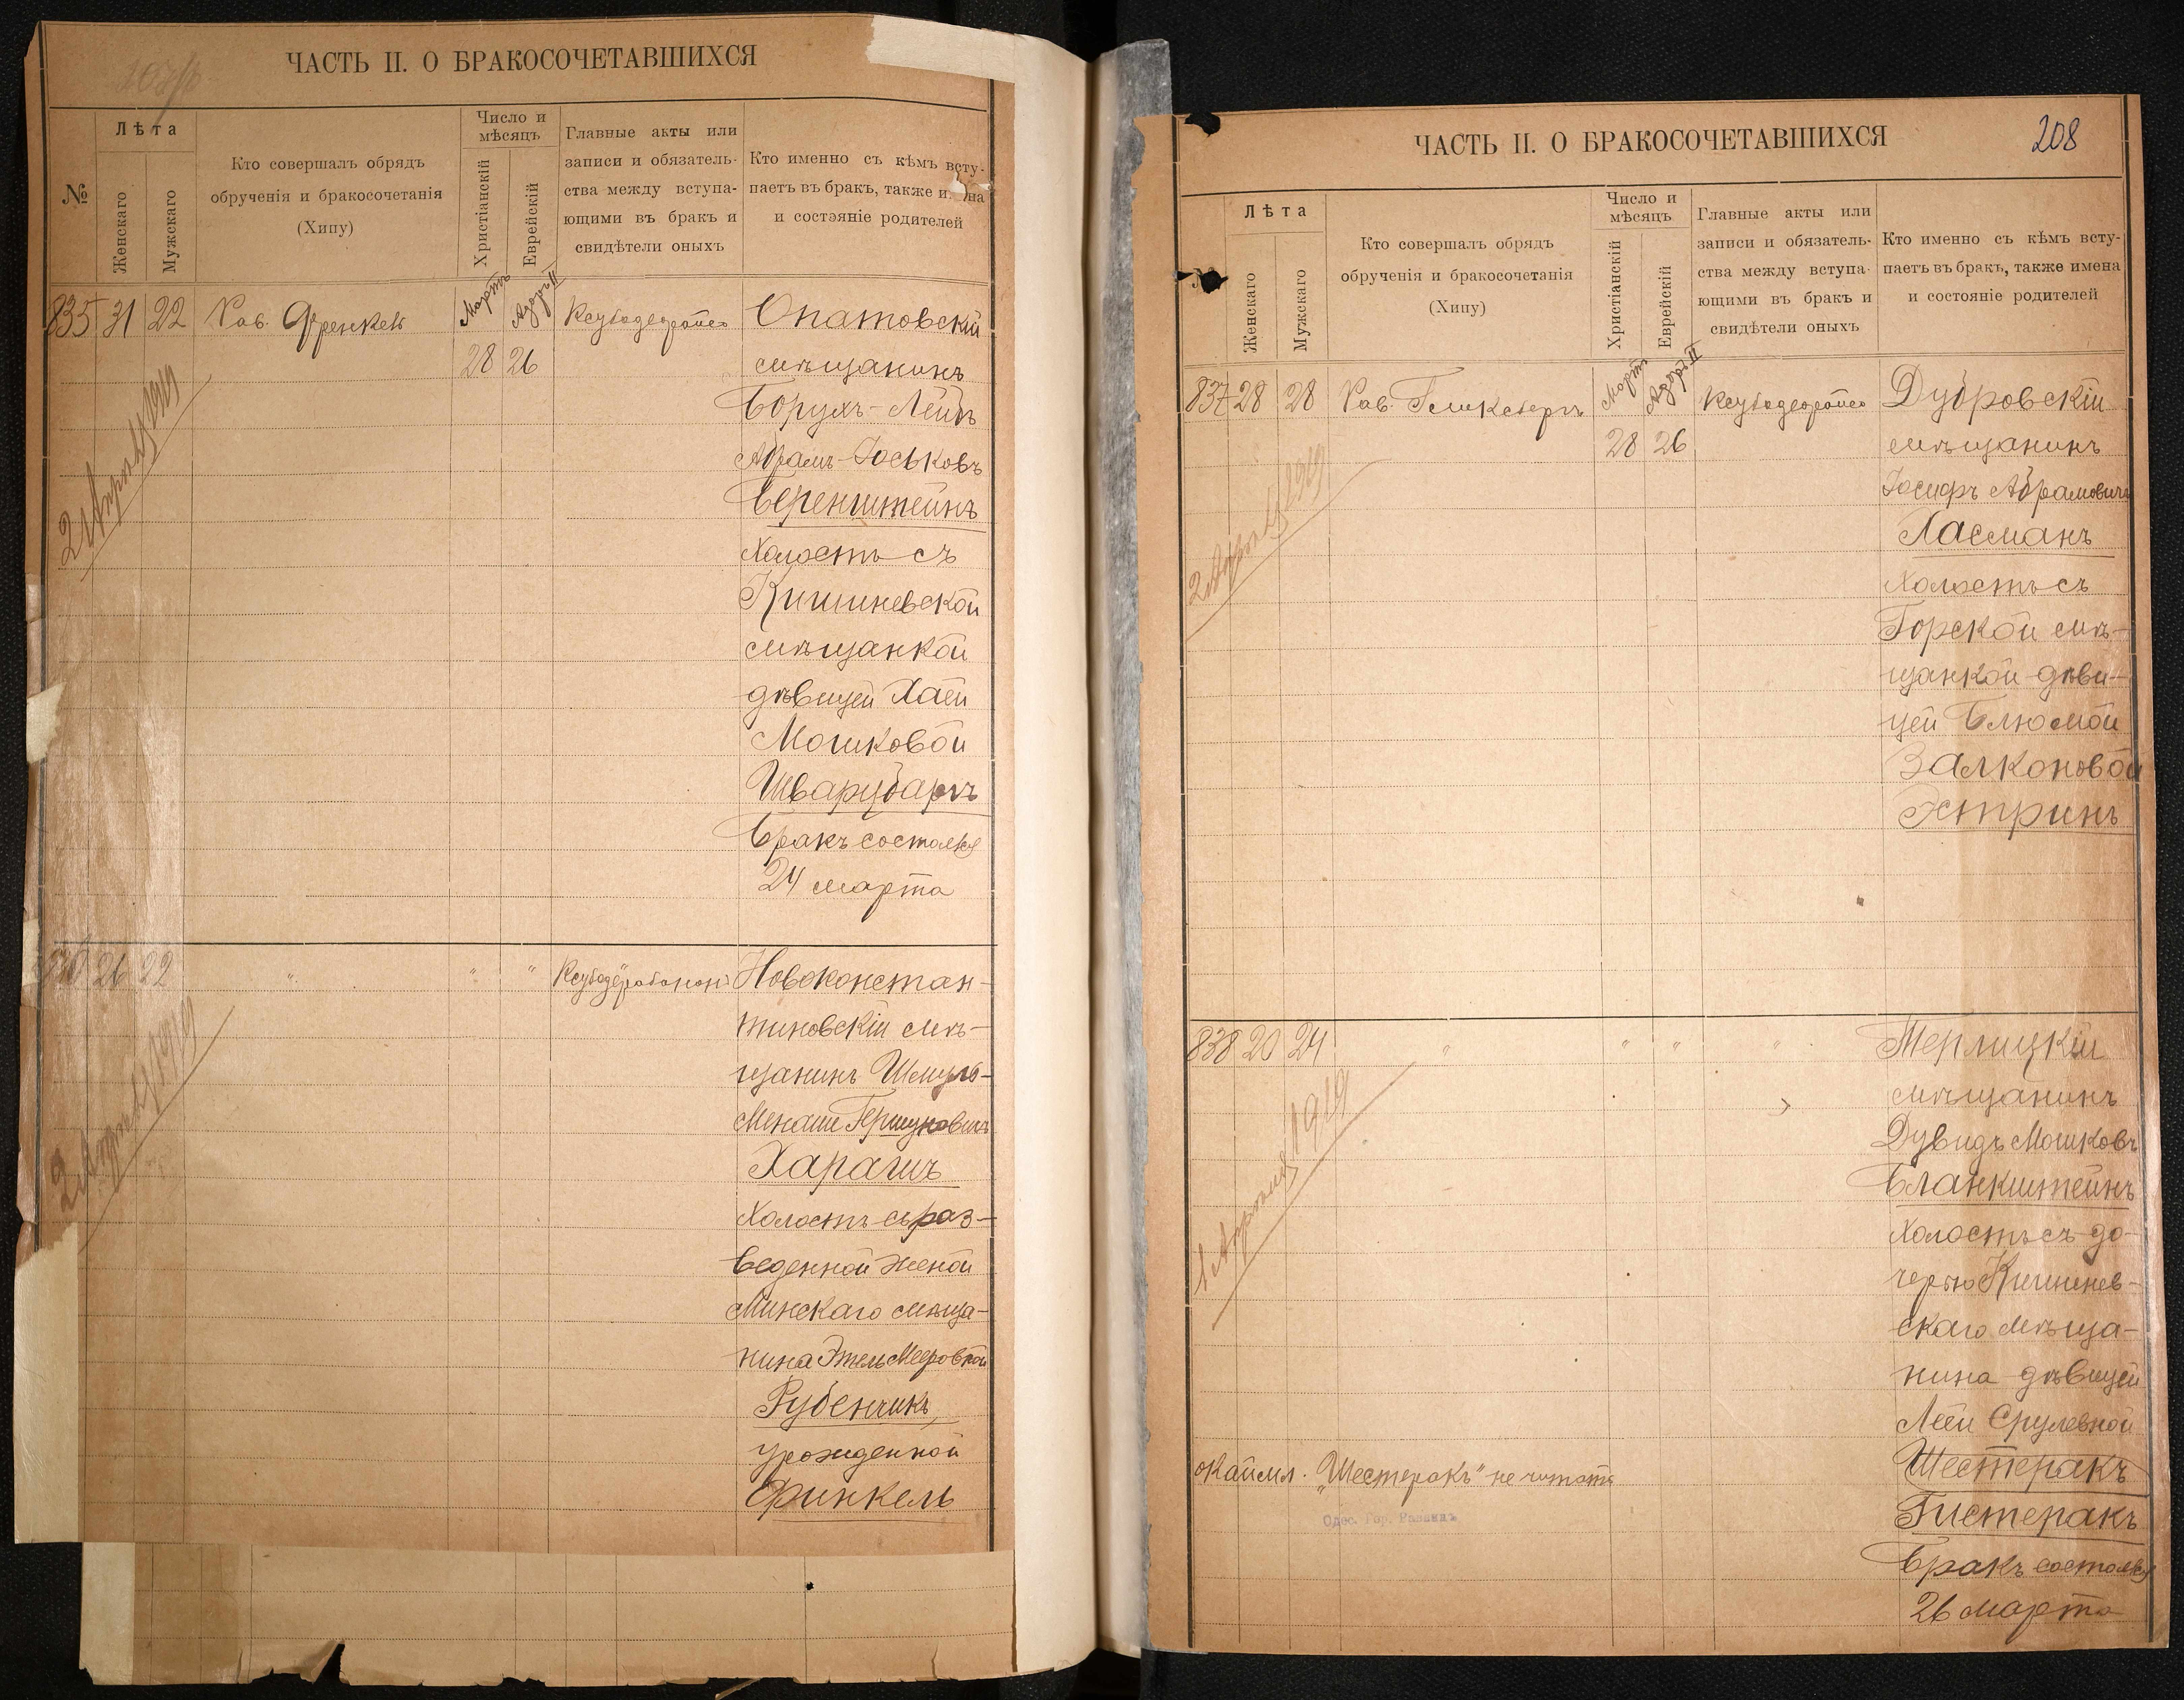 ЧАСТЬ II. О БРАКОСОЧЕТАВШИХСЯ
№
Лѣта
Женскаго
Мужскаго
Кто совершалъ обрядъ
обрученія и бракосочетанія
(Хипу)
Число и
мѣсяцъ
Христіанскій
Еврейскій
Главные акты или
записи и обязатель-
ства между вступа-
ющими въ бракъ и
свидѣтели оныхъ
Кто именно съ кѣмъ всту-
паетъ въ бракъ, также и на
и состояніе родителей
835 31 22 Рав. Френкель Мартъ Адоръ II Ксубадеорайсо Опатовскій
28 26 мѣщанинъ
Борухъ-Лейбъ
Абрамъ-Іоськовъ
Беренштейнъ
холостъ съ
Кишиневской
мѣщанкой
дѣвицей Хаей
Мошковой
Шварцбаргъ
Бракъ состоялся
24 марта
2 Апрѣля 1919
26 22 " " " Ксубадерабонон Новоконстан-
тиновскій мѣ-
щанинъ Шмуль-
Менаше Гершуновичъ
Харашъ
холостъ съ раз-
веденной женой
Минскаго мѣща-
нина Этель Мееровной
Рубенчикъ,
урожденной
Финкель
2 Апрѣля 1919
ЧАСТЬ II. О БРАКОСОЧЕТАВШИХСЯ
208
№
Лѣта
Женскаго
Мужскаго
Кто совершалъ обрядъ
обрученія и бракосочетанія
(Хипу)
Число и
мѣсяцъ
Христіанскій
Еврейскій
Главные акты или
записи и обязатель-
ства между вступа-
ющими въ бракъ и
свидѣтели оныхъ
Кто именно съ кѣмъ всту-
паетъ въ бракъ, также имена
и состояніе родителей
837 28 28 Рав. Гликсбергъ Мартъ Адоръ II Ксубадеорайсо Дубровскій
28 26 мѣщанинъ
Іосифъ Абрамовичъ
Ласманъ
холостъ съ
Горской мѣ-
щанкой дѣви-
цей Блюмой
Залконовой
Эстринъ
2 Апрѣля 1919
838 20 24 " " " " Терлицкій
мѣщанинъ
Дувидъ Мошковъ
Бланкштейнъ
холостъ съ до-
черью Кишинев-
скаго мѣща-
нина дѣвицей
Леей Срулевной
Шестеракъ
Гистеракъ
Бракъ состоялся
26 марта
1 Апрѣля 1919
окаймл. "Шестеракъ" не читать
Одес. Гор. Раввинъ